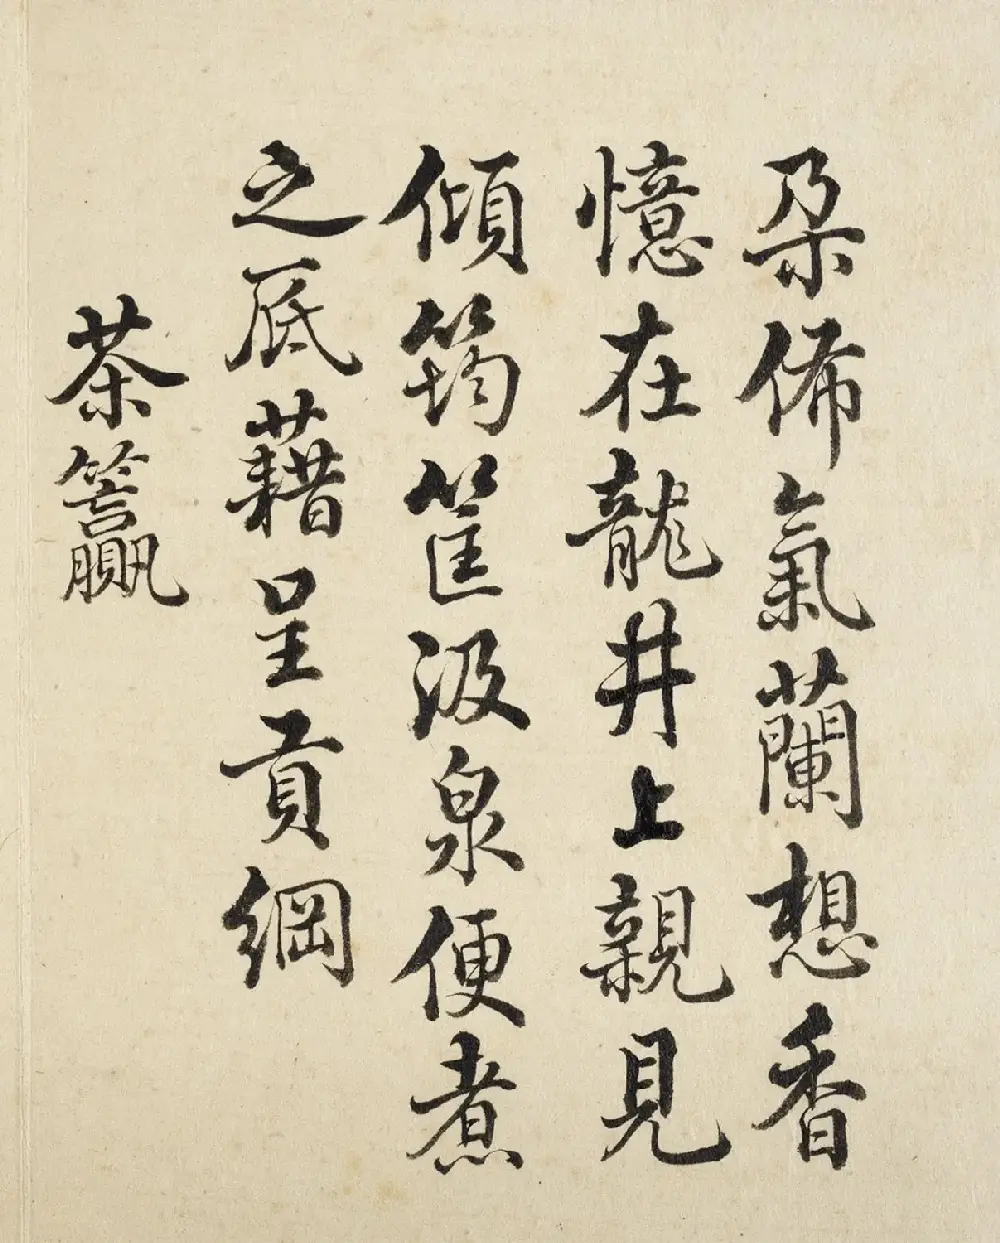 朶俙氣蘭想香
憶在龍井上親見
傾筠筐汲泉便煮
之底藉呈貢綱
茶籯